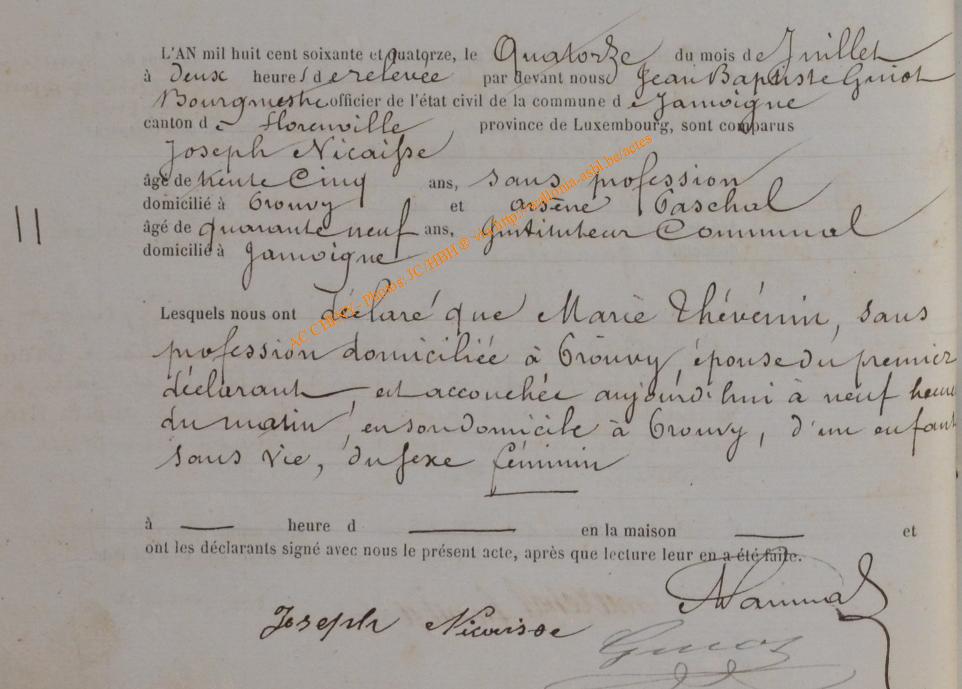 L'AN mil huit cent soixante et Quatorze, le Quatorze du mois de Juillet
à Deux heures de relevée par devant nous Jean Baptiste Guiot
Bourgmestre officier de l'état civil de la commune de Jamoigne
canton de Florenville, province de Luxembourg, sont comparus
Joseph Nicaisse
âgé de trente Cinq ans, sans profession
domicilié à Prouvy et arsène Paschal
âgé de quarante neuf ans, Instituteur Communal
domicilié à Jamoigne
11
Lesquels nous ont déclaré que Marie Thévenin, sans
profession domiciliée à Prouvy, épouse du premier
déclarant, est accouchée aujourd'hui à neuf heures
du matin, en son domicile à Prouvy, d'un enfant
sans vie, du sexe féminin
à heure d en la maison et
ont les déclarants signé avec nous le présent acte, après que lecture leur en a été faite.
Joseph Nicaisse
Guiot
AC CHINY - Photos JC HBH ® via http://wallonia-asbl.be/actes